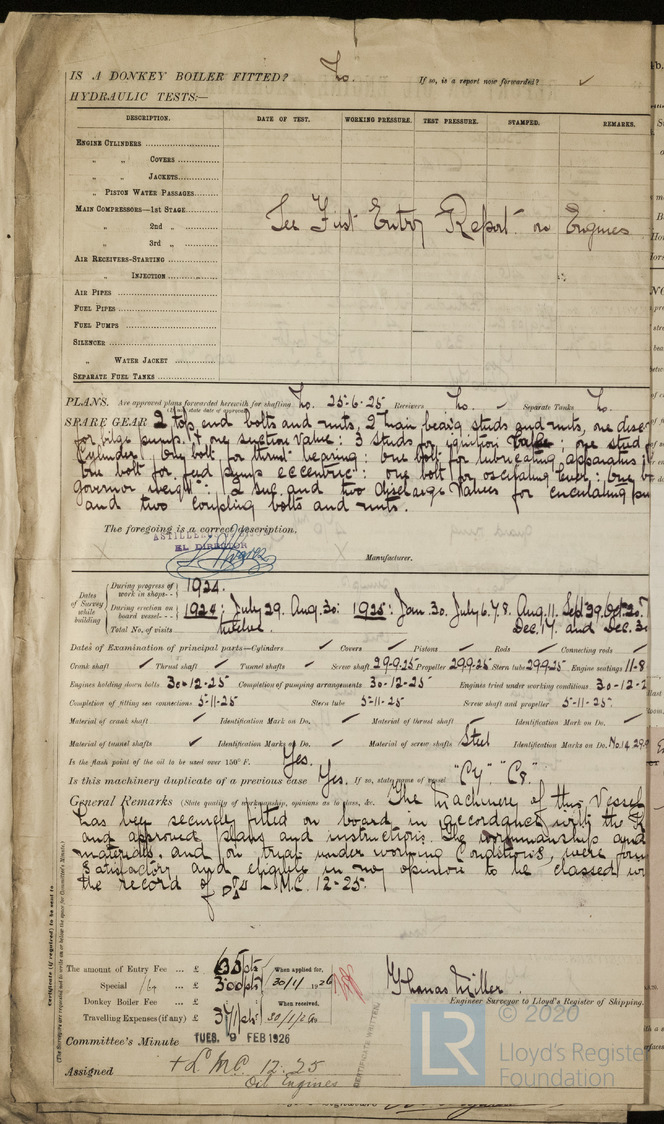 IS A DONKEY BOILER FITTED? No. If so, is a report now forwarded? ✓
HYDRAULIC TESTS:—
DESCRIPTION. DATE OF TEST. WORKING PRESSURE. TEST PRESSURE. STAMPED. REMARKS.
ENGINE CYLINDERS
„ „ COVERS
„ „ JACKETS
„ PISTON WATER PASSAGES
MAIN COMPRESSORS—1ST STAGE
„ 2nd „
„ 3rd „
See First Entry Report on Engines
AIR RECEIVERS-STARTING
„ INJECTION
AIR PIPES
FUEL PIPES
FUEL PUMPS
SILENCER
„ WATER JACKET
SEPARATE FUEL TANKS
PLANS. Are approved plans forwarded herewith for shafting No. 25-6-25 Receivers No. Separate Tanks No.
(If not, state date of approval)
SPARE GEAR 2 top end bolts and nuts, 2 main bearing studs and nuts, one
for bilge pump & one suction valve: 3 studs for ignition valve: one stud
Cylinder, one bolt for thrust bearing: one bolt for lubricating apparatus
one bolt for feed pump eccentric: one bolt for oscillating lever: one
governor weight: 2 suc. and two discharge valves for circulating
and two coupling bolts and nuts.
The foregoing is a correct description,
EL DIRECTOR
Manufacturer.
Dates of Survey while building
During progress of work in shops - - 1924.
During erection on board vessel - - 1924: July 29. Aug. 30: 1925: Jan. 30. July 6.7.8. Aug. 11. Sept 29. Oct 20.
Total No. of visits Dec. 17. and Dec. 30
Dates of Examination of principal parts—Cylinders ✓ Covers ✓ Pistons ✓ Rods ✓ Connecting rods ✓
Crank shaft ✓ Thrust shaft ✓ Tunnel shafts ✓ Screw shaft 29-9-25 Propeller 29-9-25 Stern tube 29-9-25 Engine seatings 11-8
Engines holding down bolts 30-12-25 Completion of pumping arrangements 30-12-25 Engines tried under working conditions 30-12-2
Completion of fitting sea connections 5-11-25 Stern tube 5-11-25 Screw shaft and propeller 5-11-25
Material of crank shaft ✓ Identification Mark on Do. ✓ Material of thrust shaft ✓ Identification Mark on Do. ✓
Material of tunnel shafts ✓ Identification Marks on Do. ✓ Material of screw shafts Steel Identification Marks on Do. No. 14 29.9
Is the flash point of the oil to be used over 150° F. Yes.
Is this machinery duplicate of a previous case Yes. If so, state name of vessel "C7" "C8"
General Remarks (State quality of workmanship, opinions as to class, &c. The Machinery of this Vessel
has been securely fitted on board in accordance with the R
and approved plans and instructions. The workmanship and
materials, and on trial under working conditions, were foun
satisfactory and eligible in my opinion to be classed
the record of L.M.C. 12-25.
Certificate (if required) to be sent to
(The Surveyors are requested not to write on or below the space for Committee's Minute.)
The amount of Entry Fee ... £ When applied for,
Special ... £ 300pts 30/1/1926
Donkey Boiler Fee ... £ When received,
Travelling Expenses (if any) £ 30/1/26
Thomas Miller.
Engineer Surveyor to Lloyd's Register of Shipping.
Committee's Minute TUES. 9 FEB 1926
Assigned + L.M.C. 12.25
Oil Engines
CERTIFICATE WRITTEN
LR © 2020
Lloyd's Register
Foundation